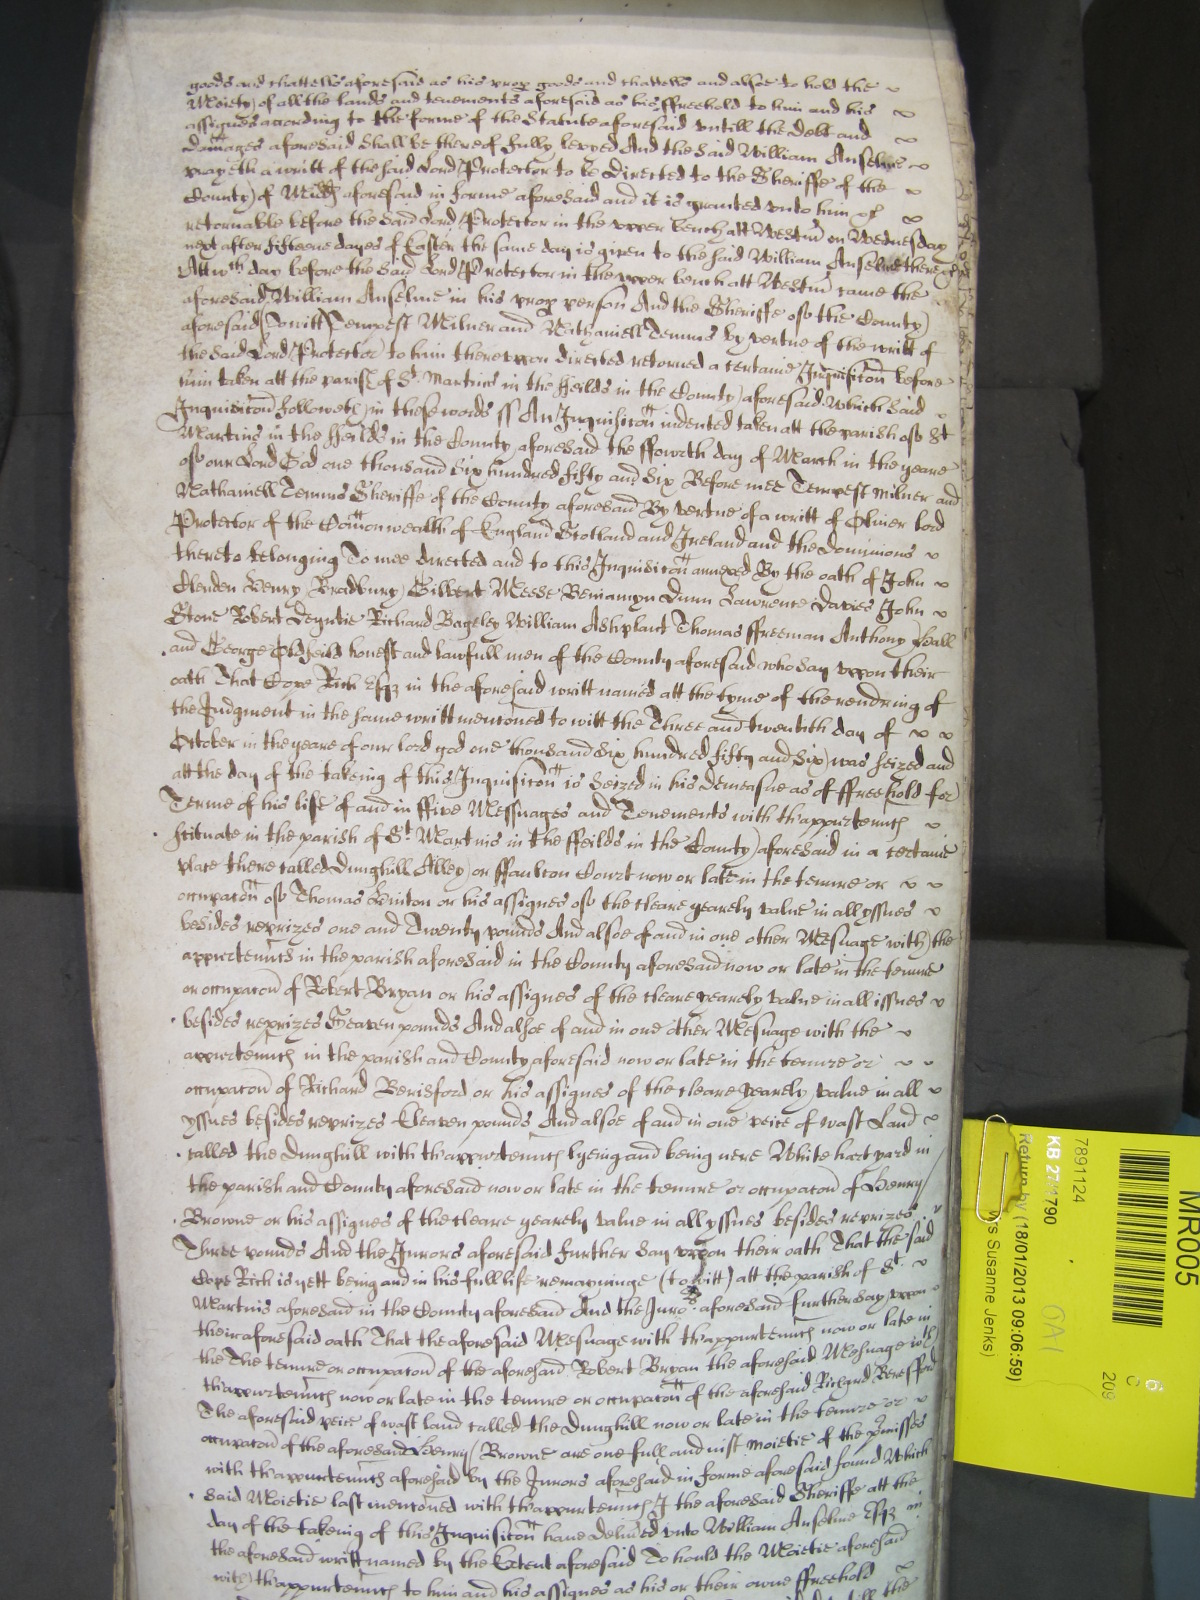 goods and chattells aforesaid as his prop goods and chattells and alsoe to hold the
Moiety of all the lands and tenements aforesaid as his ffreehold to him and his
assignes according to the forme of the Statute aforesaid untill the debt and
damages aforesaid shall be thereof fully levyed And the said William Anselme
prayeth a writt of the said Lord Protector to be directed to the Sheriffe of the
County of Midd aforesaid in forme aforesaid and it is graunted unto him &c
retornable before the said Lord Protector in the upper bench att Westm on Wednesday
next after fifteene dayes of Easter the same day is given to the said William Anselme there &c
Att wch day before the said Lord Protector in the upper bench att Westm came the
aforesaid William Anselme in his prop person And the Sheriffe of the County
aforesaid (to witt) Tempest Milner and Nathaniell Temms by vertue of the writt of
the said Lord Protector to him thereupon directed retorned a certaine Inquisicon before
him taken att the parish of St Martins in the ffeilds in the County aforesaid which said
Inquisicon followeth in these words ss An Inquisicon indented taken att the parish of St
Martins in the ffeilds in the County aforesaid the ffowrth day of March in the yeare
of our Lord God one thousand six hundred fifty and six Before mee Tempest Milner and
Nathaniell Temms Sheriffe of the County aforesaid By vertue of a writt of Oliver lord
Protector of the Comonwealth of England Scotland and Ireland and the dominions
thereto belonging To mee directed and to this Inquisicon annexed By the oath of John
Clenden Henry Bradbury Gilbert Meese Beniamyn Dunn Lawrence Davies John
Stone Robert Richard Bageley William Ashplant Thomas ffreeman Anthony Hall
and George Oldfeild honest and lawfull men of the County aforesaid who say uppon their
oath That Cope Rich Esqz in the aforesaid writt named att the tyme of the rendring of
the Judgment in the same writt mentoned to witt the Three and twentith day of
October in the yeare of our lord god one thousand six hundred fifty and six was seized and
att the day of the taking of this Inquisicon is seized in his demeasne as of ffreehold for
Terme of his life of and in ffive Messuages and Tenements with thappurtennces
scituate in the parish of St Martins in the ffeilds in the County aforesaid in a certaine
place there called Dunghill Alley or ffaulcon Court now or late in the tenure or
occupacon of Thomas Hinton or his assignes of the cleare yearely value in all yssues
besides reprizes one and Twenty pounds And alsoe of and in one other Mesuage with the
appurtennces in the parish aforesaid in the County aforesaid now or late in the tenure
or occupacon of Robert Bryan or his assignes of the cleare yearely value in all issues
besides reprizes Seaven pounds And alsoe of and in one other Mesuage with the
appurtennces in the parish and County aforesaid now or late in the tenure or
occupacon of Richard Berisford or his assignes of the cleare yearely value in all
yssues besides reprizes Eleaven pounds And alsoe of and in one peice of wast Land
called the Dunghill with thappurtennces lyeing and being nere White hart yard in
the parish and County aforesaid now or late in the tenure or occupacon of Henry
Browne or his assignes of the cleare yearely value in all yssues besides reprizes
Three pounds And the Jurors aforesaid further say uppon their oath That the said
Cope Rich is yett being and in his full life remayninge (to witt) att the parish of St
Martins aforesaid in the County aforesaid And the Juro aforesaid further say uppon
their aforesaid oath That the aforesaid Mesuage with thappurtennces now or late in
the The tenure or occupacon of the aforesaid Robert Bryan the aforesaid Mesuage with
thappurtennces now or late in the tenure or occupacon of the aforesaid Richard Beresford
The aforesaid peice of wast land called the Dunghill now or late in the tenure or
occupacon of the aforesaid Henry Browne are one full and iust Moietie of the pmisses
with thappurtennces aforesaid by the Jurors aforesaid in forme aforesaid found Which
said Moietie last mentoned with thappurtennces I the aforesaid Sheriffe att the
day of the taking of this Inquisicon have delived unto William Anselme Esqz in
the aforesaid writt named by the Extent aforesaid To hould the Moietie aforesaid
with thappurtennces to him and his assignes as his or their owne ffreehold
MR005
6
C
209
7891124
KB 27/1790
Return by (18/01/2013 09:06:59)
Ms Susanne Jenks)